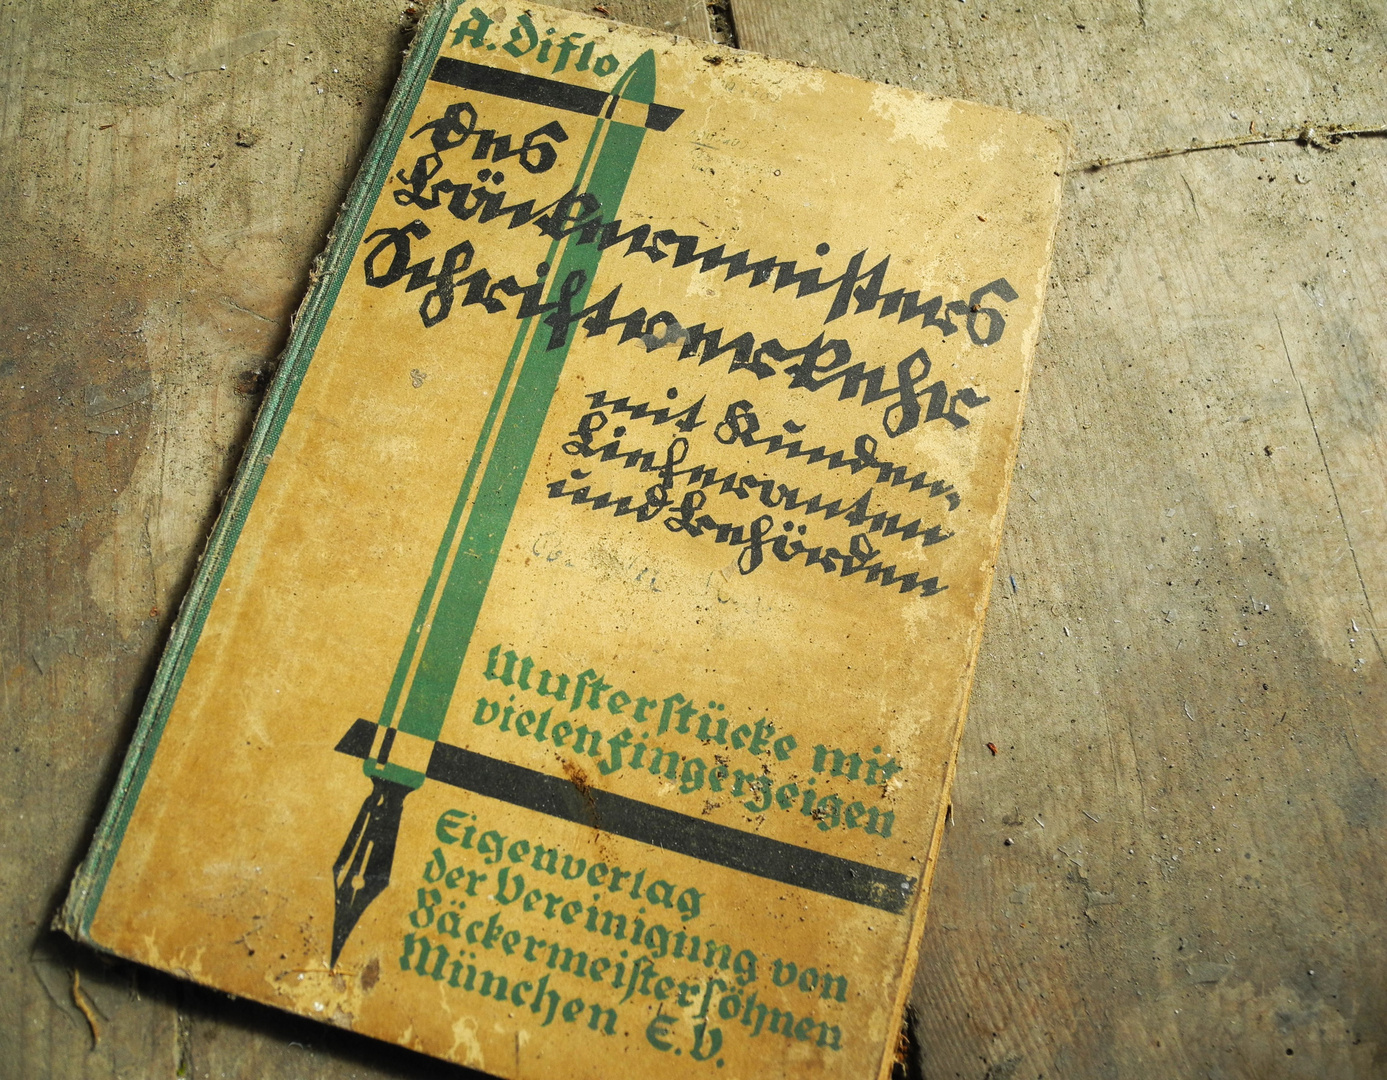 A. Diflo
Des
Bäckermeisters
Schriftverkehr
mit Kunden,
Lieferanten
und Behörden
Musterstücke mit
vielen Fingerzeigen
Eigenverlag
der Vereinigung von
Bäckermeistersöhnen
München E.V.